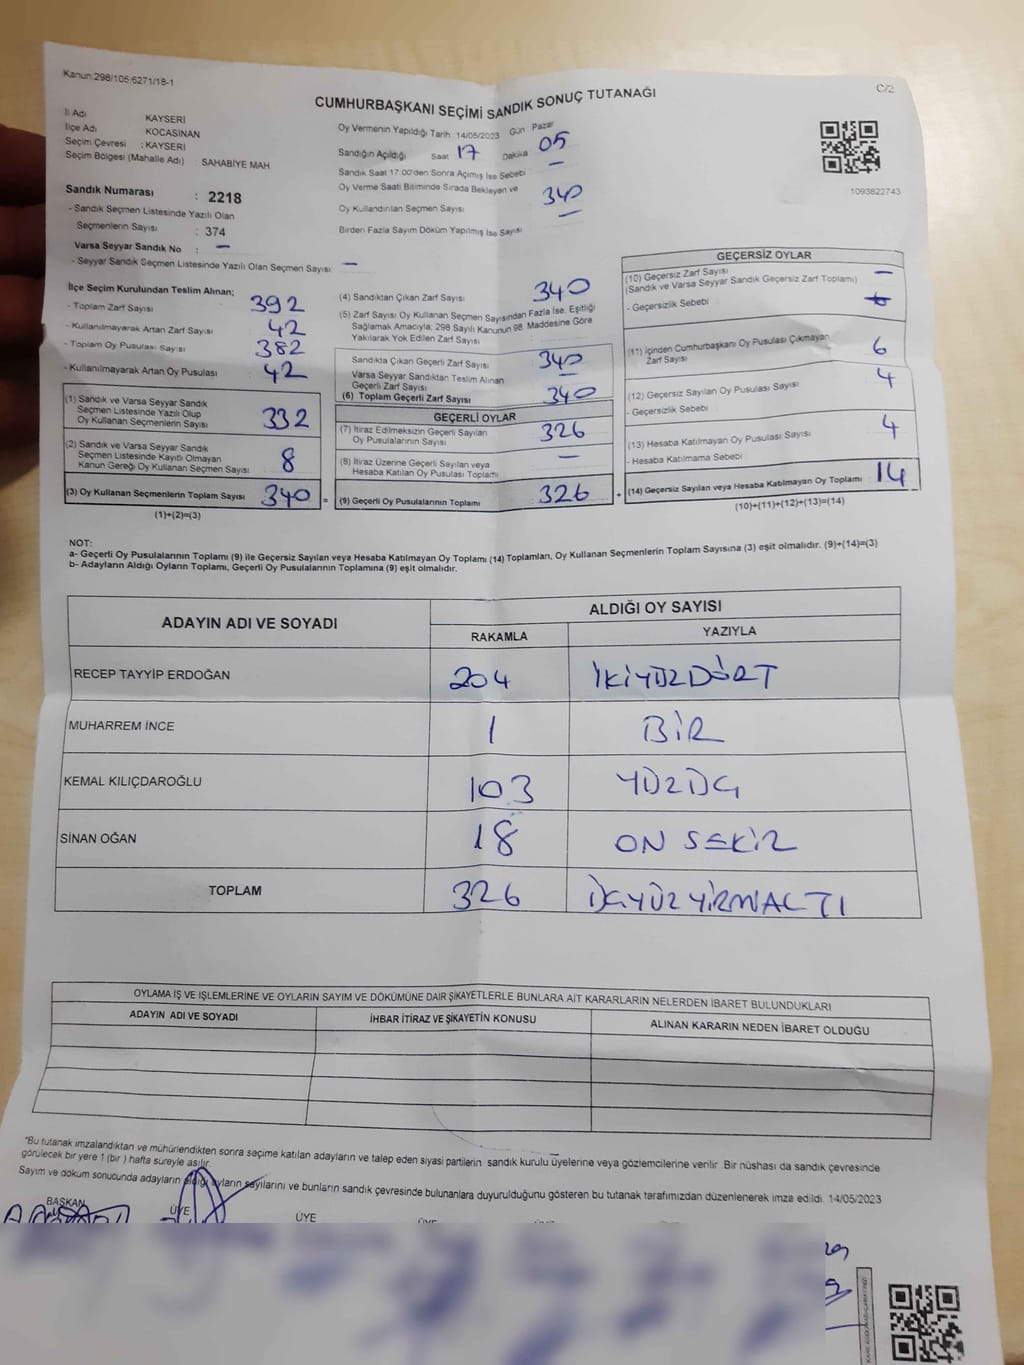 Kanun:298/105;6271/18-1
C/2
CUMHURBAŞKANI SEÇİMİ SANDIK SONUÇ TUTANAĞI
İl Adı KAYSERİ
İlçe Adı KOCASİNAN
Seçim Çevresi : KAYSERİ
Seçim Bölgesi (Mahalle Adı) SAHABİYE MAH
Sandık Numarası : 2218
- Sandık Seçmen Listesinde Yazılı Olan
Seçmenlerin Sayısı : 374
Varsa Seyyar Sandık No : -
- Seyyar Sandık Seçmen Listesinde Yazılı Olan Seçmen Sayısı: -
Oy Vermenin Yapıldığı Tarih :14/05/2023 Gün Pazar
Sandığın Açıldığı Saat 17 Dakika 05
Sandık Saat 17:00'den Sonra Açımış İse Sebebi -
Oy Verme Saati Bitiminde Sırada Bekleyen ve
Oy Kullandırılan Seçmen Sayısı 340
Birden Fazla Sayım Döküm Yapılmış İse Sayısı -
1093822743
İlçe Seçim Kurulundan Teslim Alınan;
- Toplam Zarf Sayısı 392
- Kullanılmayarak Artan Zarf Sayısı 42
- Toplam Oy Pusulası Sayısı 382
- Kullanılmayarak Artan Oy Pusulası 42
(1) Sandık ve Varsa Seyyar Sandık
Seçmen Listesinde Yazılı Olup
Oy Kullanan Seçmenlerin Sayısı 332
(2) Sandık ve Varsa Seyyar Sandık
Seçmen Listesinde Kayıtlı Olmayan
Kanun Gereği Oy Kullanan Seçmen Sayısı 8
(3) Oy Kullanan Seçmenlerin Toplam Sayısı 340 =
(1)+(2)=(3)
(4) Sandıktan Çıkan Zarf Sayısı 340
(5) Zarf Sayısı Oy Kullanan Seçmen Sayısından Fazla İse, Eşitliği
Sağlamak Amacıyla; 298 Sayılı Kanunun 98. Maddesine Göre
Yakılarak Yok Edilen Zarf Sayısı
Sandıkta Çıkan Geçerli Zarf Sayısı 340
Varsa Seyyar Sandıktan Teslim Alınan
Geçerli Zarf Sayısı -
(6) Toplam Geçerli Zarf Sayısı 340
GEÇERLİ OYLAR
(7) İtiraz Edilmeksizin Geçerli Sayılan
Oy Pusulalarının Sayısı 326
(8) İtiraz Üzerine Geçerli Sayılan veya
Hesaba Katılan Oy Pusulası Toplamı -
(9) Geçerli Oy Pusulalarının Toplamı 326 +
GEÇERSİZ OYLAR
(10) Geçersiz Zarf Sayısı -
(Sandık ve Varsa Seyyar Sandık Geçersiz Zarf Toplamı)
- Geçersizlik Sebebi
(11) İçinden Cumhurbaşkanı Oy Pusulası Çıkmayan
Zarf Sayısı 6
(12) Geçersiz Sayılan Oy Pusulası Sayısı 4
- Geçersizlik Sebebi
(13) Hesaba Katılmayan Oy Pusulası Sayısı 4
- Hesaba Katılmama Sebebi
(14) Geçersiz Sayılan veya Hesaba Katılmayan Oy Toplamı 14
(10)+(11)+(12)+(13)=(14)
NOT:
a- Geçerli Oy Pusulalarının Toplamı (9) ile Geçersiz Sayılan veya Hesaba Katılmayan Oy Toplamı (14) Toplamları, Oy Kullanan Seçmenlerin Toplam Sayısına (3) eşit olmalıdır. (9)+(14)=(3)
b- Adayların Aldığı Oyların Toplamı, Geçerli Oy Pusulalarının Toplamına (9) eşit olmalıdır.
ADAYIN ADI VE SOYADI ALDIĞI OY SAYISI
RAKAMLA YAZIYLA
RECEP TAYYİP ERDOĞAN 204 İKİYÜZDÖRT
MUHARREM İNCE 1 BİR
KEMAL KILIÇDAROĞLU 103 YÜZÜÇ
SİNAN OĞAN 18 ON SEKİZ
TOPLAM 326 ÜÇYÜZYİRMİALTI
OYLAMA İŞ VE İŞLEMLERİNE VE OYLARIN SAYIM VE DÖKÜMÜNE DAİR ŞİKAYETLERLE BUNLARA AİT KARARLARIN NELERDEN İBARET BULUNDUKLARI
ADAYIN ADI VE SOYADI İHBAR İTİRAZ VE ŞİKAYETİN KONUSU ALINAN KARARIN NEDEN İBARET OLDUĞU
*Bu tutanak imzalandıktan ve mühürlendikten sonra seçime katılan adayların ve talep eden siyasi partilerin sandık kurulu üyelerine veya gözlemcilerine verilir. Bir nüshası da sandık çevresinde
görülecek bir yere 1 (bir ) hafta süreyle asılır.
Sayım ve döküm sonucunda adayların aldığı oyların sayılarını ve bunların sandık çevresinde bulunanlara duyurulduğunu gösteren bu tutanak tarafımızdan düzenlenerek imza edildi. 14/05/2023
BAŞKAN ÜYE ÜYE